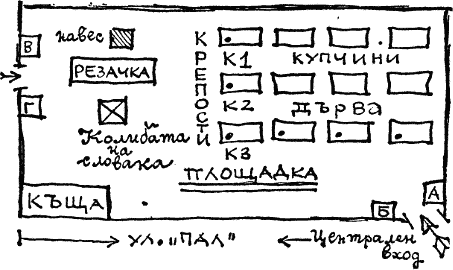 навес
В
РЕЗАЧКА
Г
Колибата
на
словака
КЪЩА
КРЕПОСТИ
К1
КУПЧИНИ
К2
ДЪРВА
К3
ПЛОЩАДКА
А
Б
УЛ. „ПДЛ"
Централен
вход